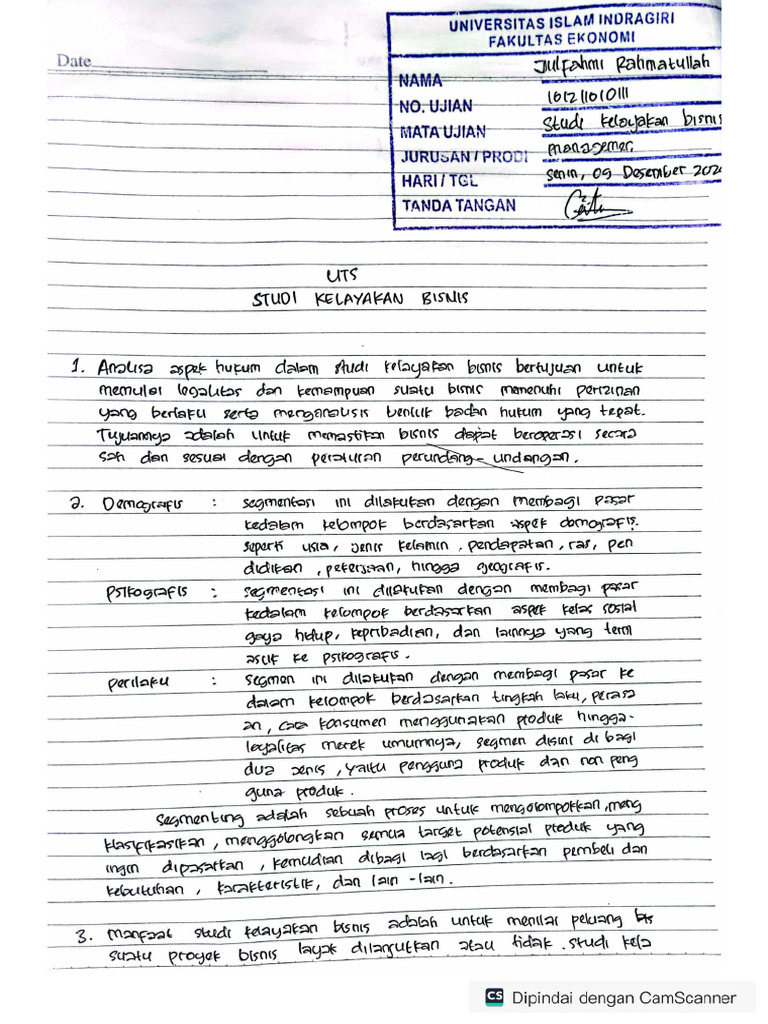 UNIVERSITAS ISLAM INDRAGIRI
FAKULTAS EKONOMI
Date
NAMA Julfahmi Rahmatullah
NO. UJIAN
MATA UJIAN Studi kelayakan bisnis
JURUSAN / PRODI managemen
HARI / TGL senin, 09 Desember 202
TANDA TANGAN
UTS
STUDI KELAYAKAN BISNIS
1. Analisa aspek hukum dalam studi kelayakan bisnis bertujuan untuk
memulai legalitas dan kemampuan suatu bisnis memenuhi perizinan
yang berlaku serta menganalisis bentuk badan hukum yang tepat.
Tujuannya adalah untuk memastikan bisnis dapat beroperasi secara
sah dan sesuai dengan peraturan perundang-undangan.
2. Demografis : segmentasi ini dilakukan dengan membagi pasar
kedalam kelompok berdasarkan aspek demografis.
seperti usia, jenis kelamin, pendapatan, ras, pen
didikan, pekerjaan, hingga geografis.
psikografis : segmentasi ini dilakukan dengan membagi pasar
kedalam kelompok berdasarkan aspek kelas sosial
gaya hidup, kepribadian, dan lainnya yang term
asuk ke psikografis.
perilaku : segmen ini dilakukan dengan membagi pasar ke
dalam kelompok berdasarkan tingkah laku, perasa
an, cara konsumen menggunakan produk hingga-
loyalitas merek umumnya, segmen disini di bagi
dua jenis, yaitu pengguna produk dan non peng
guna produk.
Segmenting adalah sebuah proses untuk mengolompokkan, meng
klasifikasikan, menggolongkan semua target potensial produk yang
ingin dipasarkan, kemudian dibagi lagi berdasarkan pembeli dan
kebutuhan, karakteristik, dan lain-lain.
3. Manfaat studi kelayakan bisnis adalah untuk menilai peluang
suatu proyek bisnis layak dilanjutkan atau tidak. studi kela
CS Dipindai dengan CamScanner